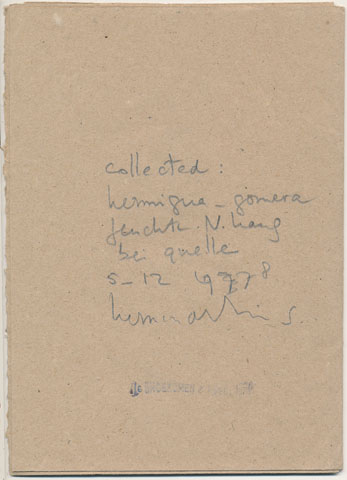 collected:
hermigua - gomera
feuchte N. hang
bei quelle
5-12 1978
herman